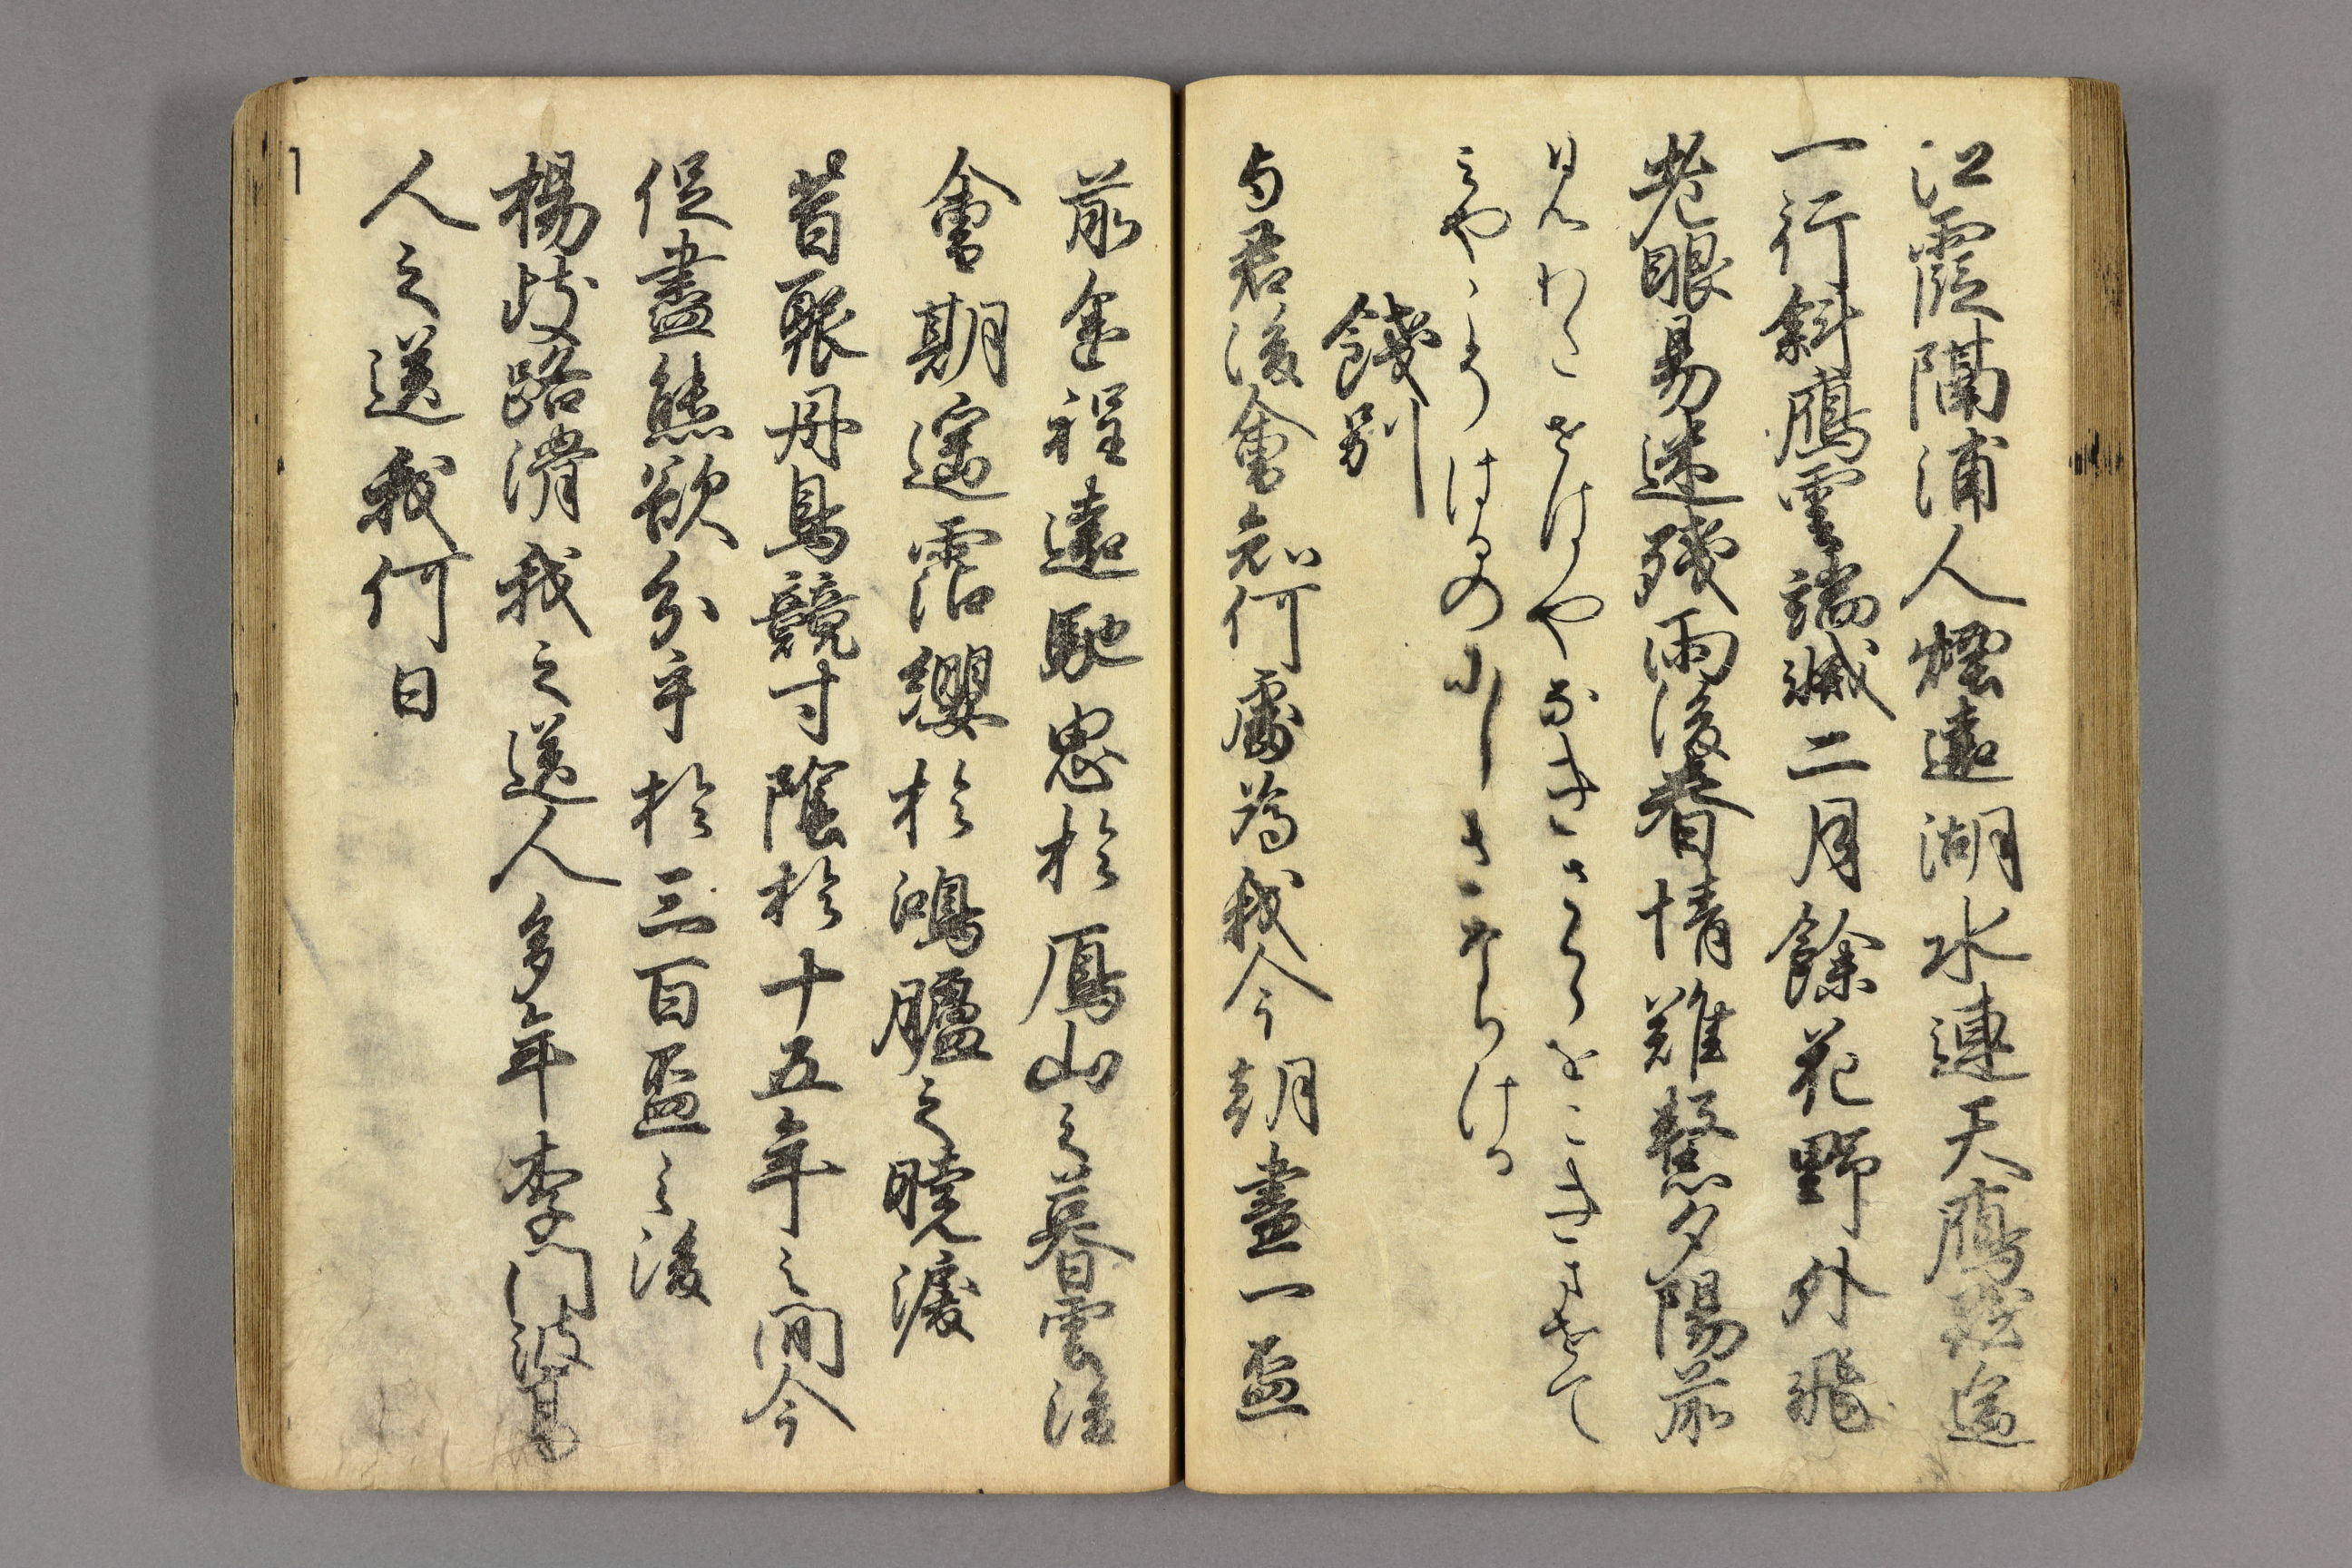 江霞隔浦人煙遠湖水連天鴈點遥
一行斜鴈雲端滅二月餘花野外飛
老眼易迷残雨後春情難繋夕陽前
見わたせはやなきさくらをこきませて
みやこそはるのにしきなりける
餞別
与君後會知何處為我今朝盡一盃
前途程遠馳思於鴈山之暮雲後
會期遥霑纓於鴻臚之曉涙
昔聚丹鳥競寸陰於十五年之間今
促畫熊欲分手於三百盃之後
楊岐路滑我之送人多年李門波高
人之送我何日